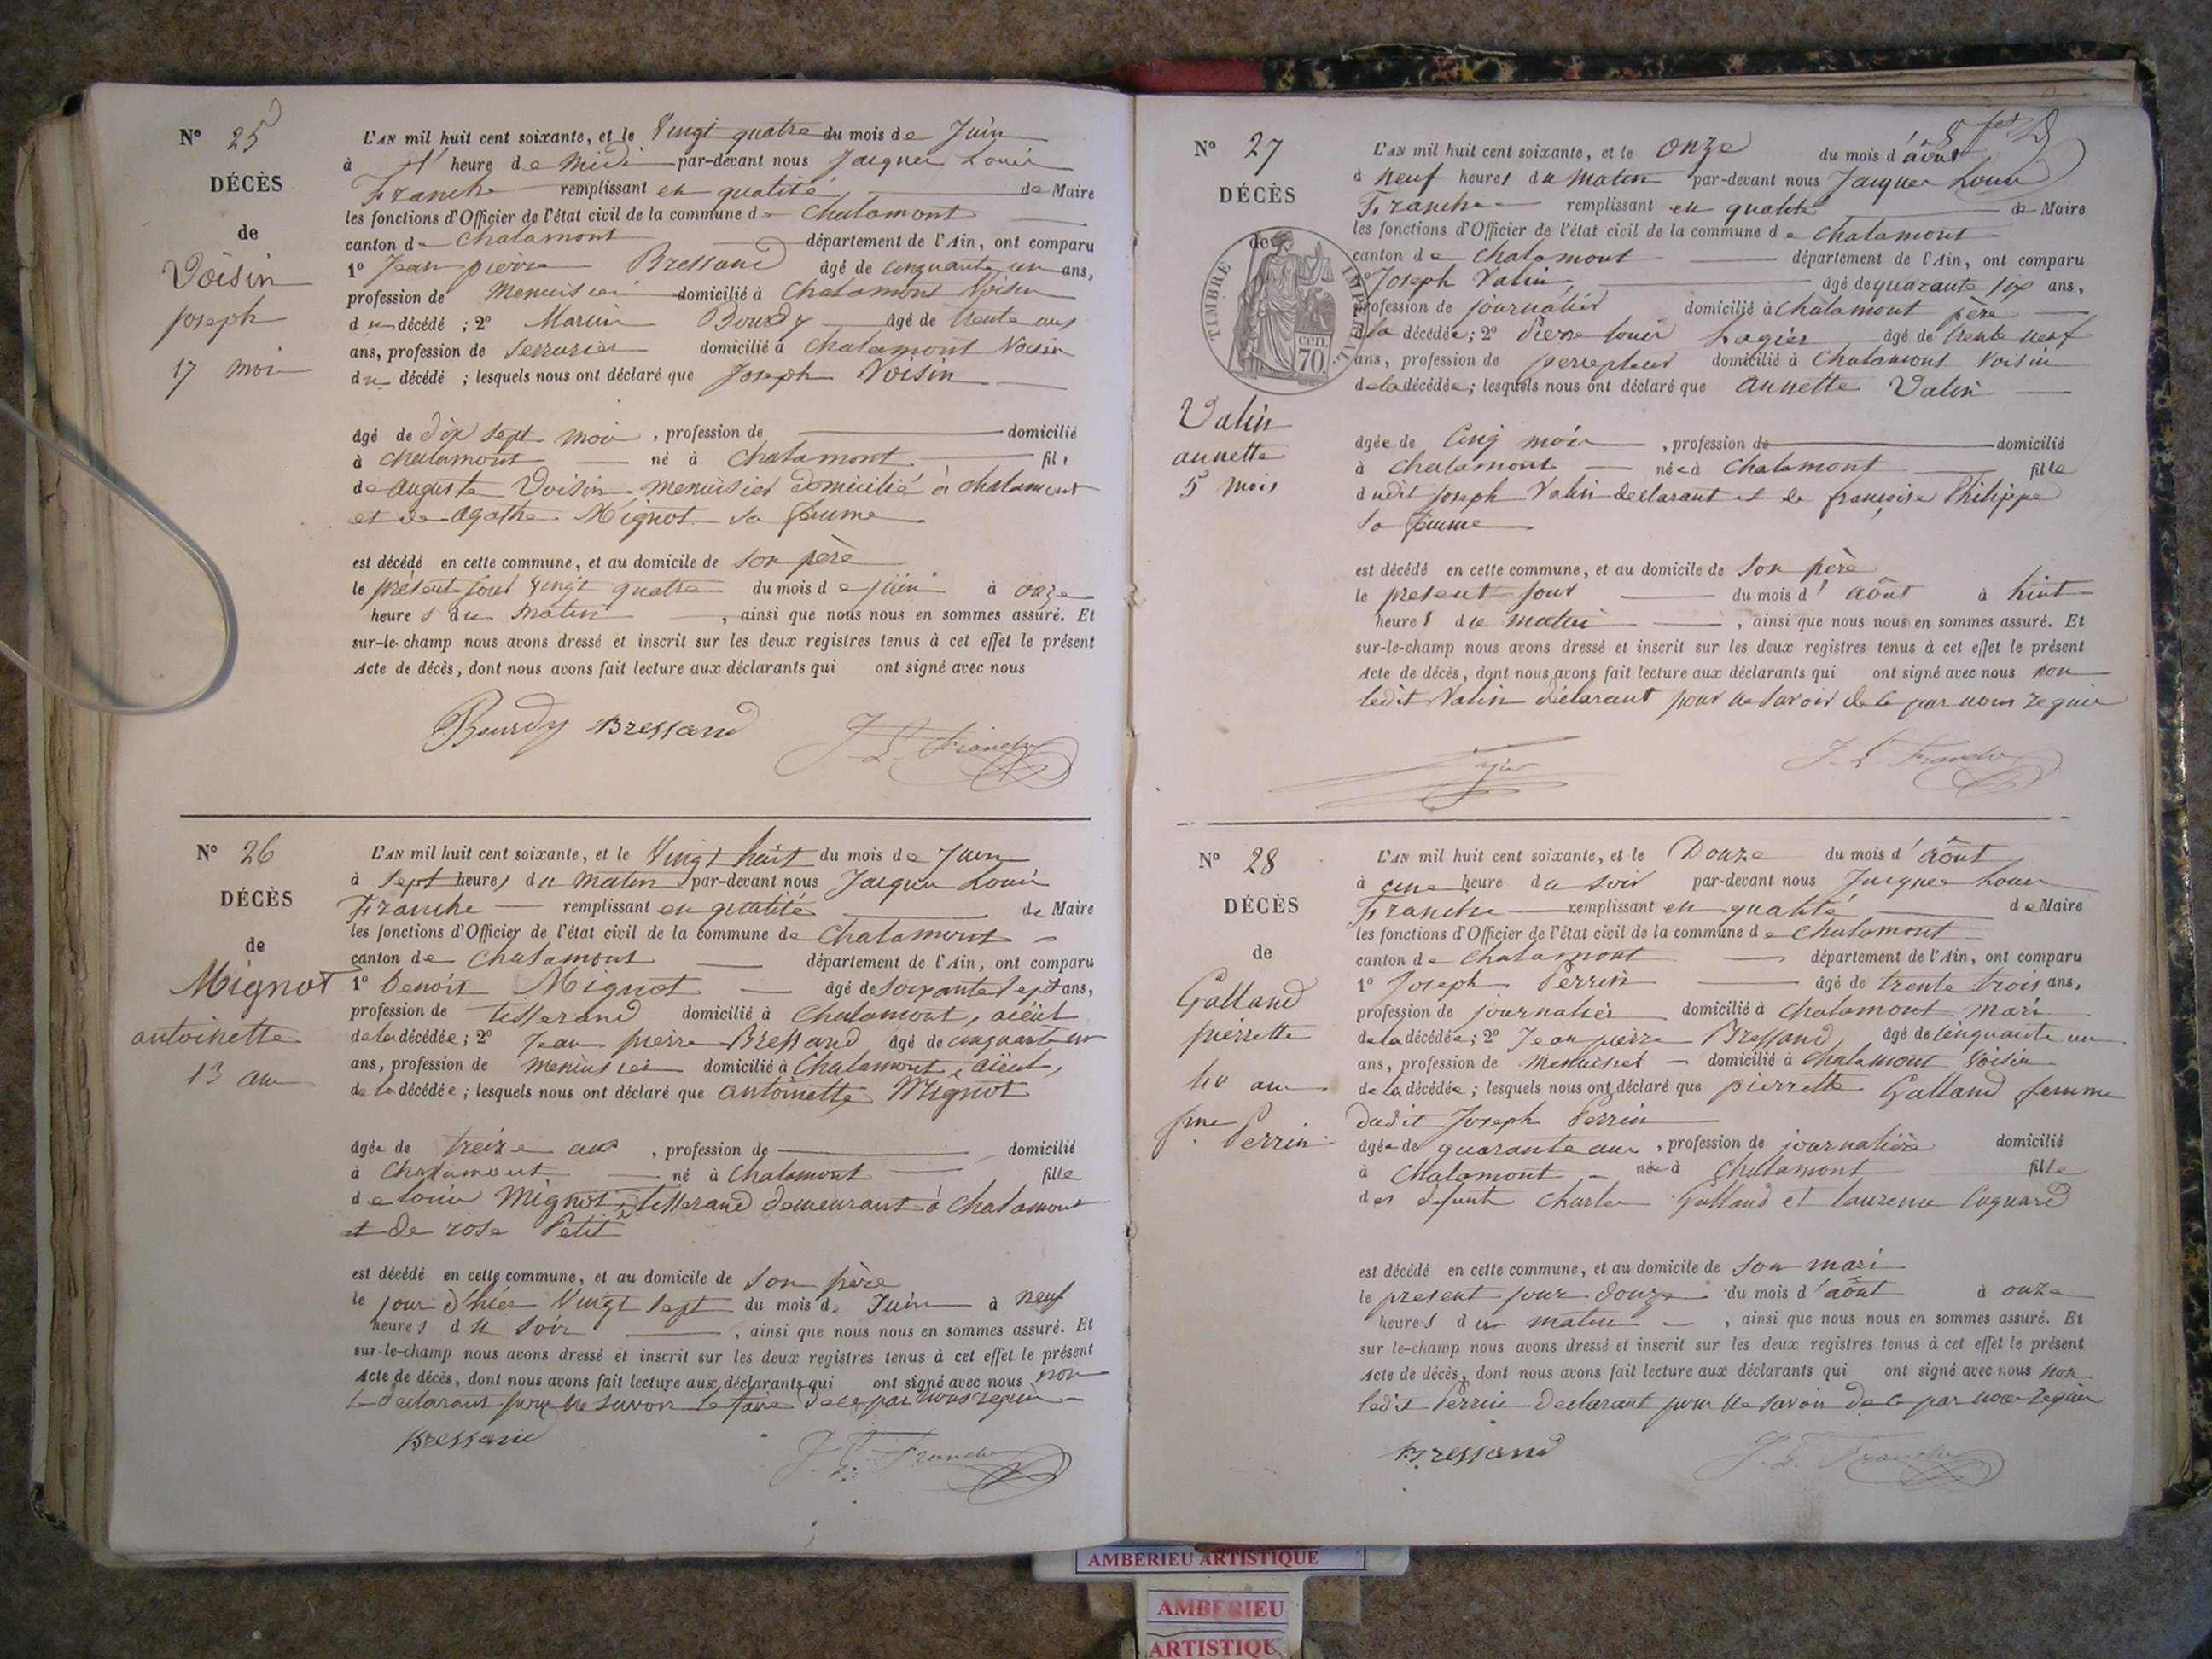 N° 25
DÉCÈS
de
Voisin
joseph
17 mois
L'AN mil huit cent soixante, et le Vingt quatre du mois de Juin
à l' heure de midi par-devant nous Jacques Louis
Franche remplissant en qualité de Maire
les fonctions d'Officier de l'état civil de la commune de Chalamont
canton de Chalamont département de l'Ain, ont comparu
1° Jean pierre Bressand âgé de cinquante un ans,
profession de Menuisier domicilié à Chalamont Voisin
du décédé ; 2° Bourdy âgé de trente ans
ans, profession de Serrurier domicilié à Chalamont Voisin
du décédé ; lesquels nous ont déclaré que Joseph Voisin
âgé de dix sept mois , profession de domicilié
à Chalamont né à Chalamont fils
de auguste Voisin menuisier domicilié à chalamont
et de agathe Mignot sa femme
est décédé en cette commune, et au domicile de son père
le présent jour vingt quatre du mois de juin à onze
heures du matin , ainsi que nous nous en sommes assuré. Et
sur-le-champ nous avons dressé et inscrit sur les deux registres tenus à cet effet le présent
Acte de décès, dont nous avons fait lecture aux déclarants qui ont signé avec nous
Bourdy Bressand J. L. Franche
N° 26
DÉCÈS
de
Mignot
antoinette
13 ans
L'AN mil huit cent soixante, et le Vingt huit du mois de Juin
à sept heures du matin par-devant nous Jacques Louis
Franche remplissant en qualité de Maire
les fonctions d'Officier de l'état civil de la commune de Chalamont
canton de Chalamont département de l'Ain, ont comparu
1° Benoit Mignot âgé de soixante sept ans,
profession de tisserand domicilié à Chalamont, aïeul
de la décédée ; 2° Jean pierre Bressand âgé de cinquante un
ans, profession de menuisier domicilié à Chalamont, aïeul,
de la décédée ; lesquels nous ont déclaré que antoinette Mignot
âgée de treize ans , profession de domicilié
à Chalamont né à Chalamont fille
de louis Mignot, tisserand demeurant à Chalamont
et de rose Petit
est décédé en cette commune, et au domicile de son père
le jour d'hier Vingt sept du mois de Juin à neuf
heures du soir , ainsi que nous nous en sommes assuré. Et
sur-le-champ nous avons dressé et inscrit sur les deux registres tenus à cet effet le présent
Acte de décès, dont nous avons fait lecture aux déclarants qui ont signé avec nous non
le déclarant pour ne savoir le faire de ce par nous requis
Bressand J. L. Franche
N° 27
DÉCÈS
de
TIMBRE IMPERIAL
cen.
70.
Valin
annette
5 mois
L'AN mil huit cent soixante, et le onze du mois d'août
à neuf heures du matin par-devant nous Jacques Louis
Franche remplissant en qualité de Maire
les fonctions d'Officier de l'état civil de la commune de Chalamont
canton de Chalamont département de l'Ain, ont comparu
1° Joseph Valin, âgé de quarante six ans,
profession de journalier domicilié à Chalamont père
de la décédée ; 2° Pierre louis Lagier âgé de trente neuf
ans, profession de percepteur domicilié à Chalamont Voisin
de la décédée ; lesquels nous ont déclaré que annette Valin
âgée de cinq mois , profession de domicilié
à Chalamont née à Chalamont fille
dudit joseph Valin déclarant et de françoise Philippe
sa femme
est décédé en cette commune, et au domicile de son père
le présent jour du mois d'août à huit
heures du matin , ainsi que nous nous en sommes assuré. Et
sur-le-champ nous avons dressé et inscrit sur les deux registres tenus à cet effet le présent
Acte de décès, dont nous avons fait lecture aux déclarants qui ont signé avec nous non
ledit Valin déclarant pour ne savoir de ce par nous requis
Lagier J. L. Franche
N° 28
DÉCÈS
de
Galland
pierrette
40 ans
fme Perrin
L'AN mil huit cent soixante, et le Douze du mois d'août
à une heure du soir par-devant nous Jacques Louis
Franche remplissant en qualité de Maire
les fonctions d'Officier de l'état civil de la commune de Chalamont
canton de Chalamont département de l'Ain, ont comparu
1° Joseph Perrin âgé de trente trois ans,
profession de journalier domicilié à Chalamont mari
de la décédée ; 2° Jean pierre Bressand âgé de cinquante un
ans, profession de Menuisier domicilié à Chalamont Voisin
de la décédée ; lesquels nous ont déclaré que pierrette Galland femme
dudit Joseph Perrin
âgée de quarante ans , profession de journalière domicilié
à Chalamont née à Chalamont fille
des défunts Charles Galland et laurence Coquard
est décédé en cette commune, et au domicile de son mari
le présent jour douze du mois d'août à onze
heures du matin , ainsi que nous nous en sommes assuré. Et
sur le-champ nous avons dressé et inscrit sur les deux registres tenus à cet effet le présent
Acte de décès, dont nous avons fait lecture aux déclarants qui ont signé avec nous non
ledit Perrin déclarant pour ne savoir de ce par nous requis
Bressand J. L. Franche
AMBERIEU ARTISTIQUE
AMBERIEU
ARTISTIQUE